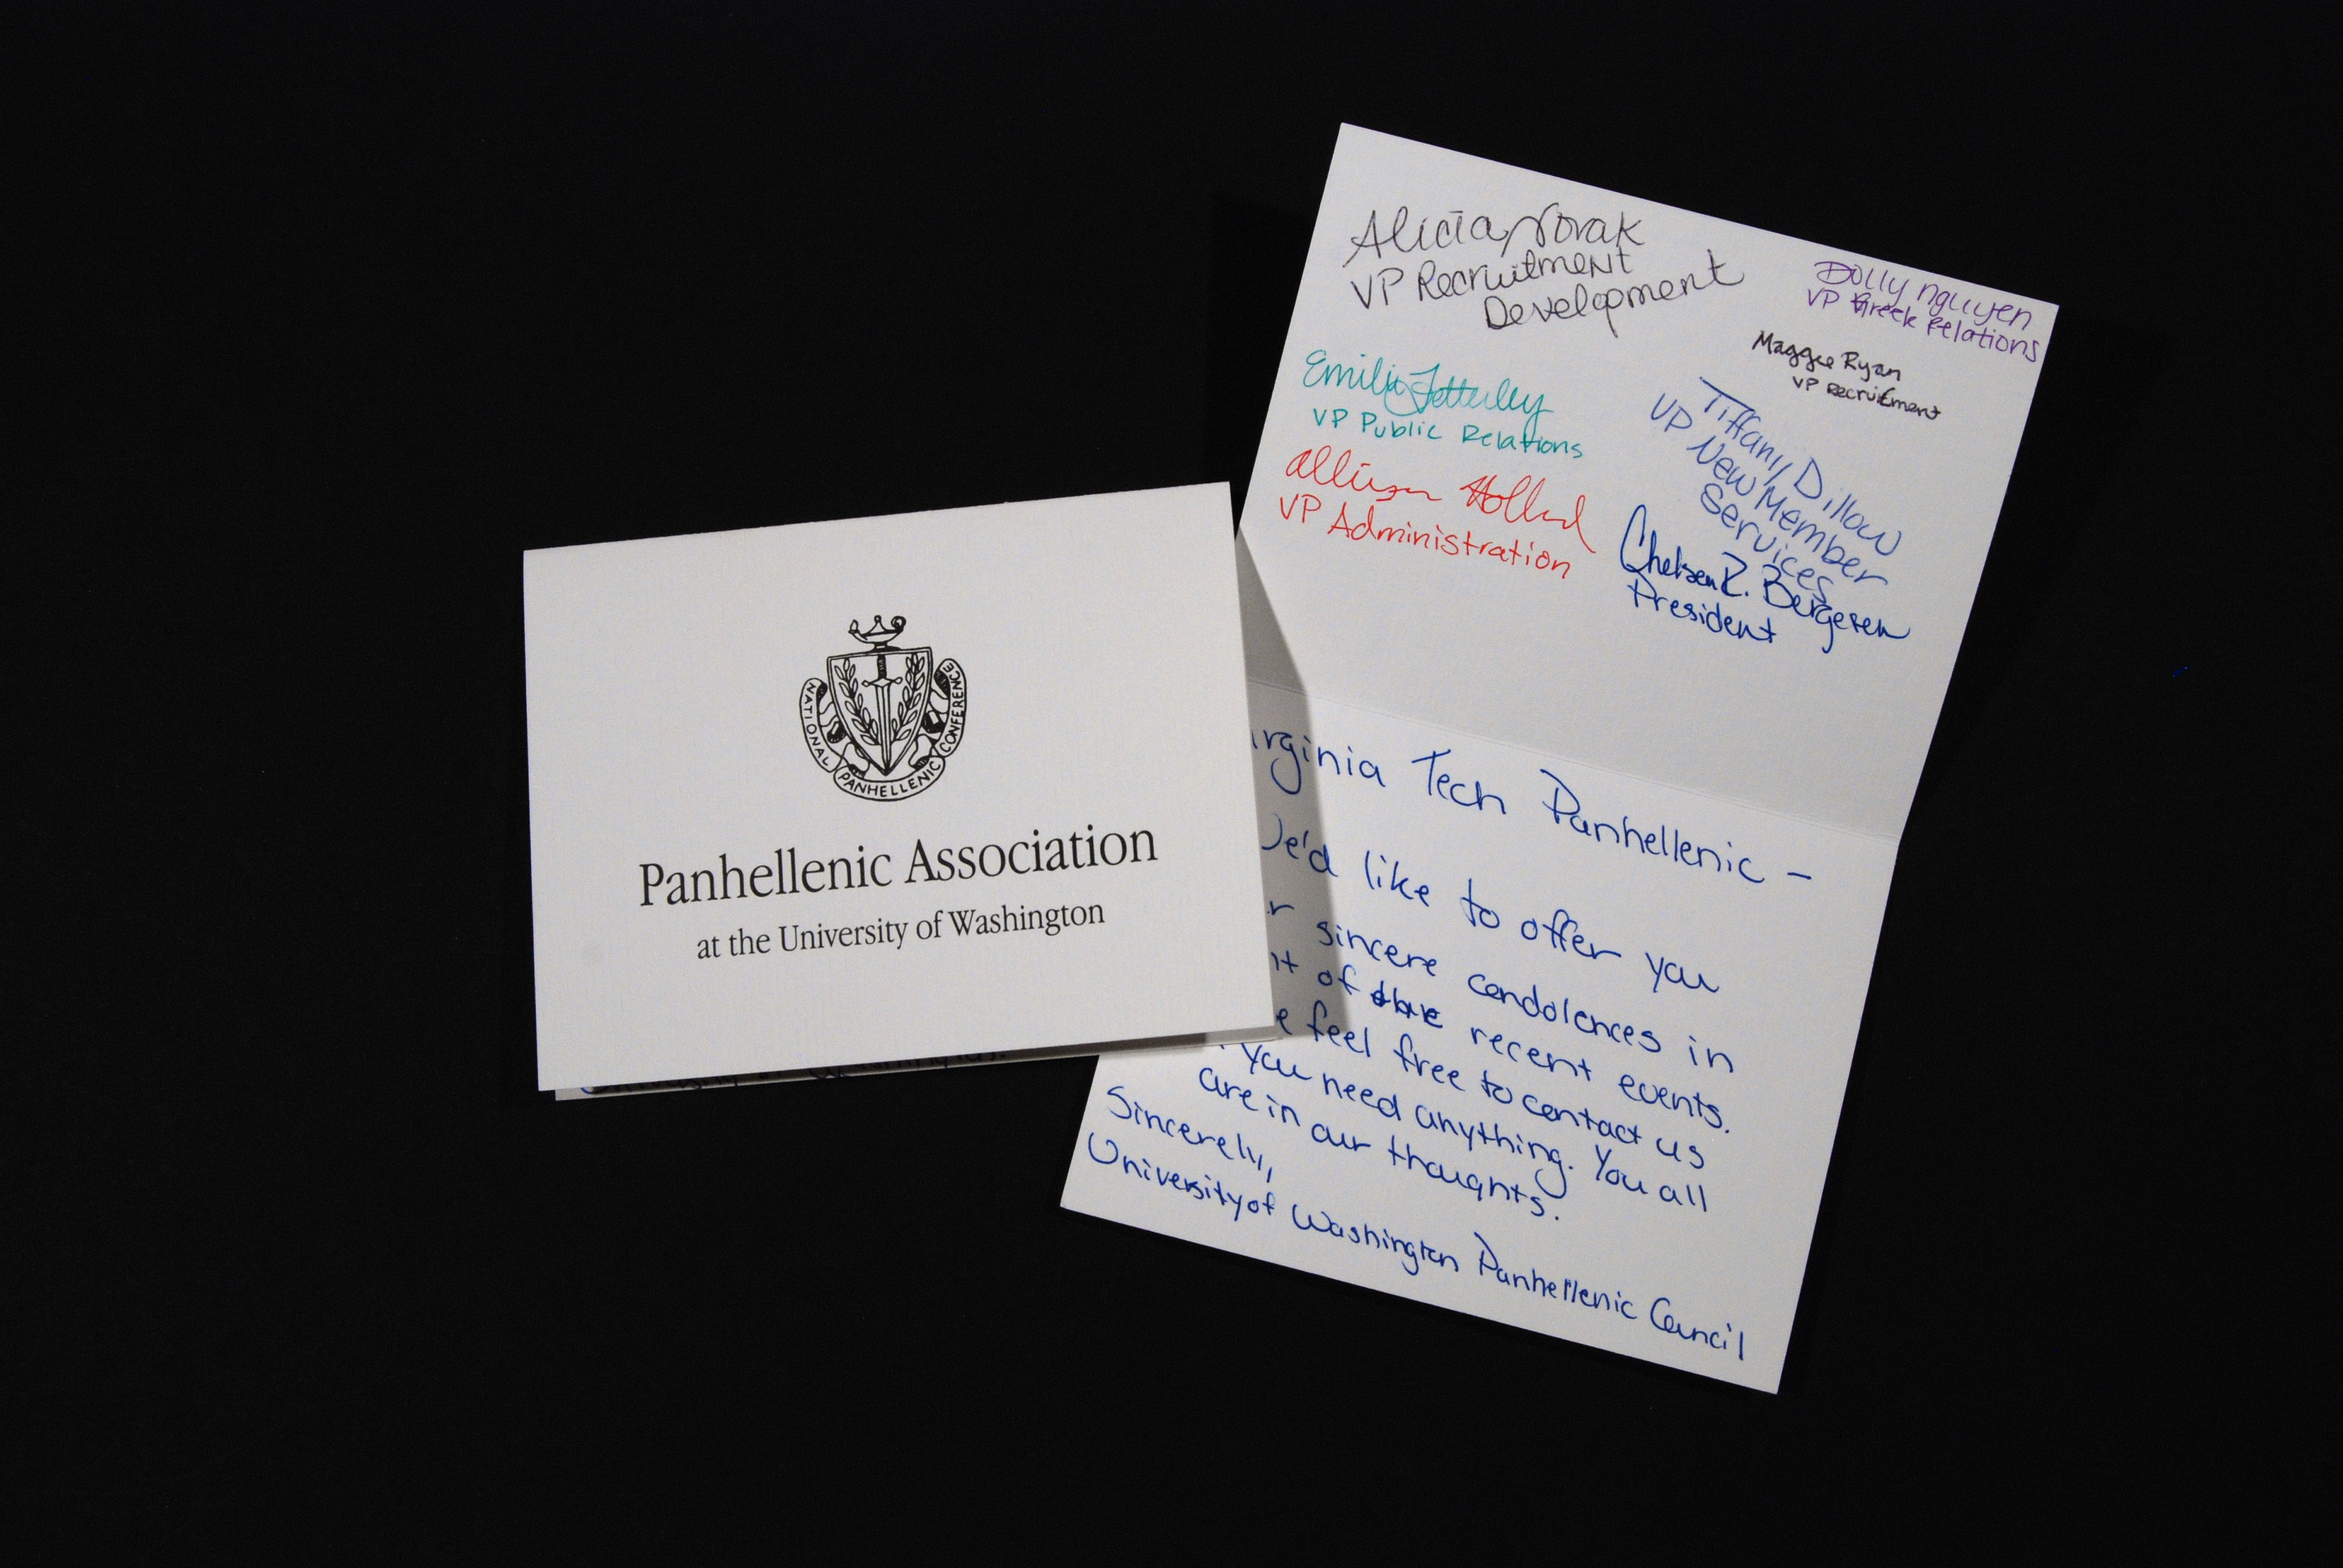 NATIONAL PANHELLENIC CONFERENCE
Panhellenic Association
at the University of Washington
Alicia Novak
VP Recruitment
Development
Dolly Nguyen
VP Greek Relations
Maggie Ryan
VP Recruitment
Emily Fetterley
VP Public Relations
Tiffany Dillow
VP New Member
Services
Allison Holland
VP Administration
Chelsea R. Bergesen
President
irginia Tech Panhellenic -
e'd like to offer you
r sincere condolences in
of recent events.
e feel free to contact us
you need anything. You all
are in our thoughts.
Sincerely,
University of Washington Panhellenic Council